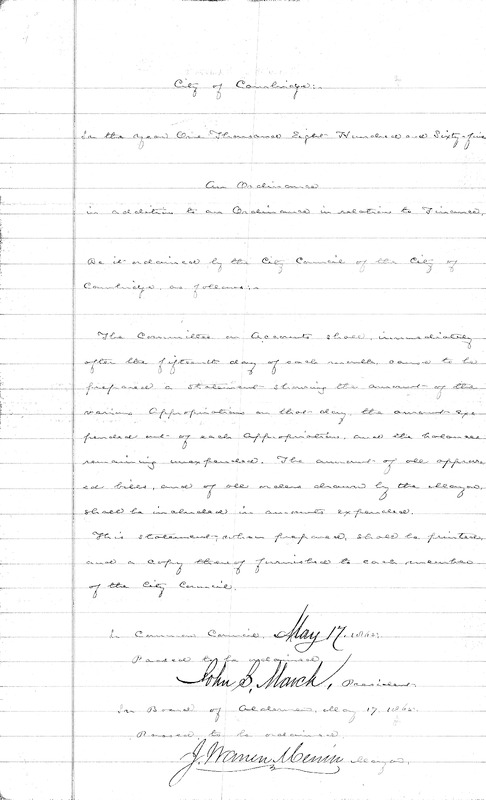 City of Cambridge:.
In the Year One Thousand Eight Hundred and Sixty-five
An Ordinance
in addition to an Ordinance in relation to Finance.
Be it ordained by the City Council of the City of
Cambridge, as follows:.
The Committee on Accounts shall, immediately
after the fifteenth day of each month, cause to be
prepared a statement showing the amount of the
various Appropriations on that day, the amount ex-
pended out of each appropriation, and the balances
remaining unexpended. The amount of all approv-
ed bills, and of all orders drawn by the Mayor,
shall be included in amounts expended.
This statement, when prepared, shall be printed,
and a copy thereof furnished to each member
of the City Council.
In Common Council, May 17. 1865.
Passed to be ordained
John S. March, President.
In Board of Aldermen, May 17, 1865.
Passed to be ordained.
J. Warren Merrill Mayor.